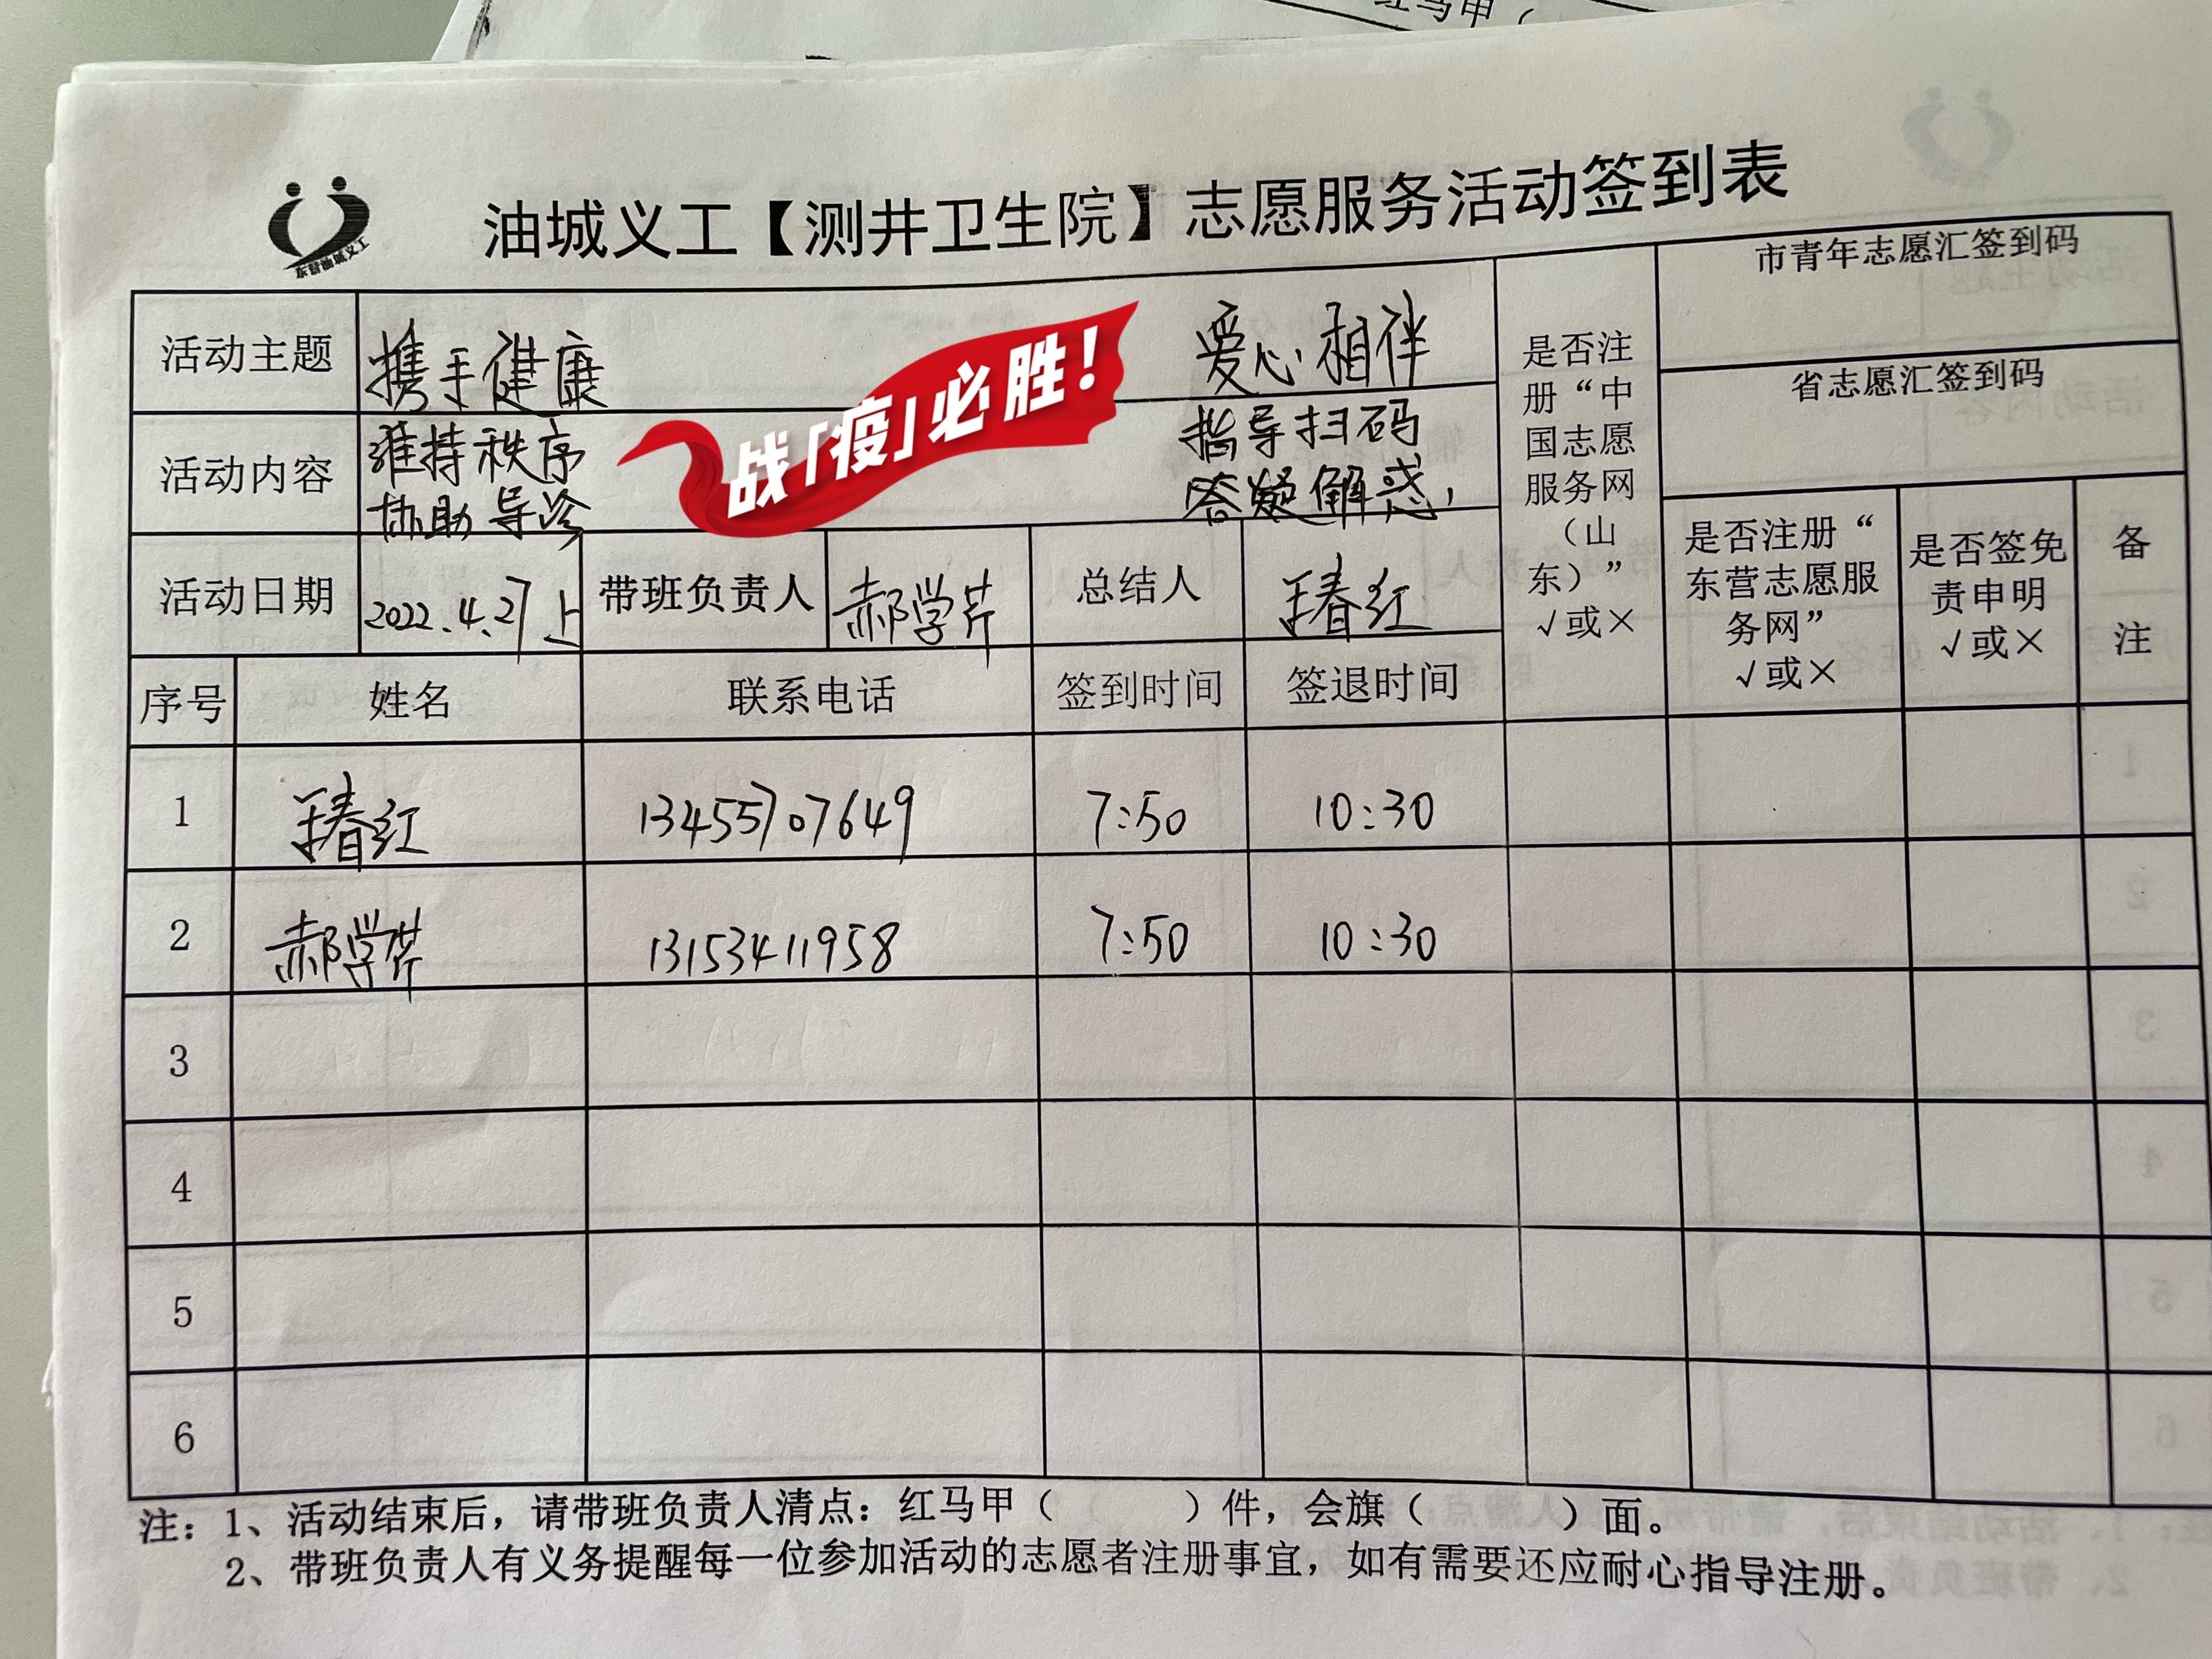 红马甲（
东营油城义工
油城义工【测井卫生院】志愿服务活动签到表
活动主题
携手健康
爱心相伴
战「疫」必胜！
活动内容
维持秩序
协助导诊
指导扫码
答疑解惑，
活动日期
2022.4.27上
带班负责人
郝学芹
总结人
王春红
是否注
册“中
国志愿
服务网
（山
东）”
√或×
市青年志愿汇签到码
省志愿汇签到码
是否注册“
东营志愿服
务网”
√或×
是否签免
责申明
√或×
备
注
序号 姓名 联系电话 签到时间 签退时间
1 王春红 13455707649 7:50 10:30
2 郝学芹 13153411958 7:50 10:30
3
4
5
6
注：1、活动结束后，请带班负责人清点：红马甲（ ）件，会旗（ ）面。
2、带班负责人有义务提醒每一位参加活动的志愿者注册事宜，如有需要还应耐心指导注册。